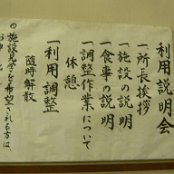 利用説明会
一所長挨拶
一施設の説明
一食事の説明
一調整作業について
休憩
一利用調整
随時解散
◎施設見学を希望される方は、